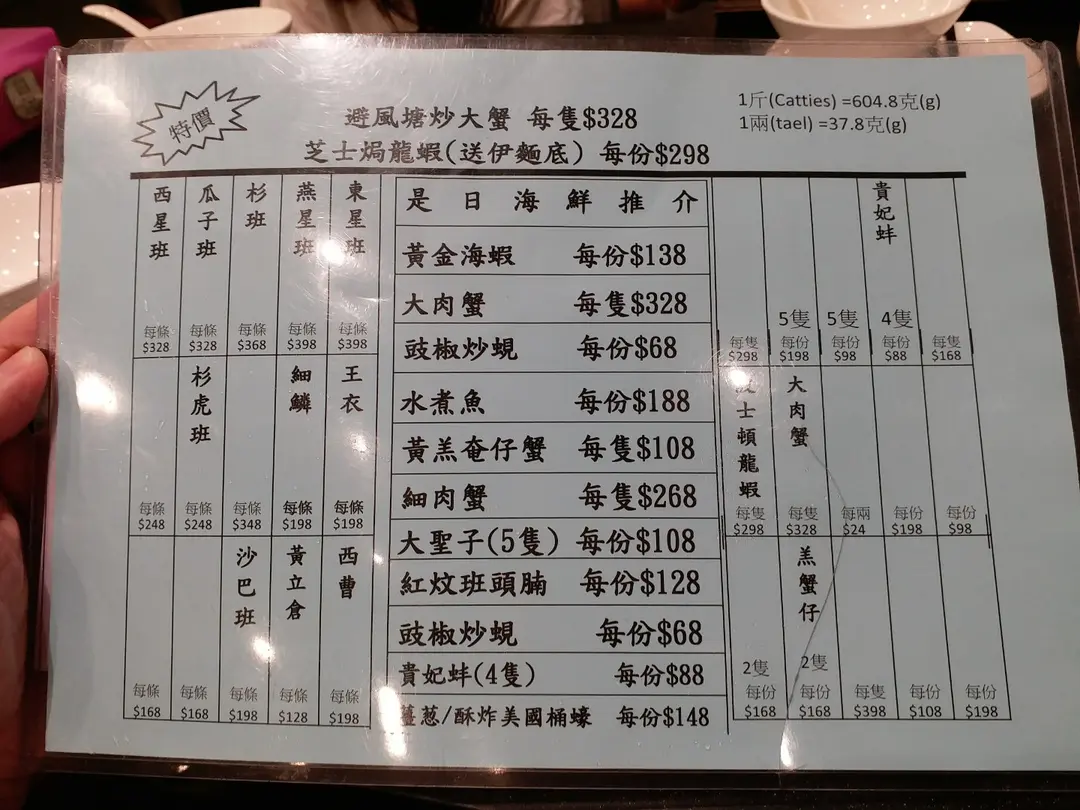 特價
避風塘炒大蟹 每隻$328
芝士焗龍蝦(送伊麵底) 每份$298
1斤(Catties) =604.8克(g)
1兩(tael) =37.8克(g)
西星班 每條 $328
瓜子班 每條 $328
杉班 每條 $368
燕星班 每條 $398
東星班 每條 $398
每條 $248
杉虎班 每條 $248
每條 $348
細鱗 每條 $198
王衣 每條 $198
每條 $168
每條 $168
沙巴班 每條 $198
黃立倉 每條 $128
西曹 每條 $198
是日海鮮推介
黃金海蝦 每份$138
大肉蟹 每隻$328
豉椒炒蜆 每份$68
水煮魚 每份$188
黃羔奄仔蟹 每隻$108
細肉蟹 每隻$268
大聖子(5隻) 每份$108
紅炆班頭腩 每份$128
豉椒炒蜆 每份$68
貴妃蚌(4隻) 每份$88
薑蔥/酥炸美國桶蠔 每份$148
每隻 $298
5隻 每份 $198
5隻 每份 $98
貴妃蚌 4隻 每份 $88
每隻 $168
士頓龍蝦 每隻 $298
大肉蟹 每隻 $328
每兩 $24
每份 $198
每份 $98
2隻 每份 $168
羔蟹仔 2隻 每份 $168
每隻 $398
每份 $108
每份 $198